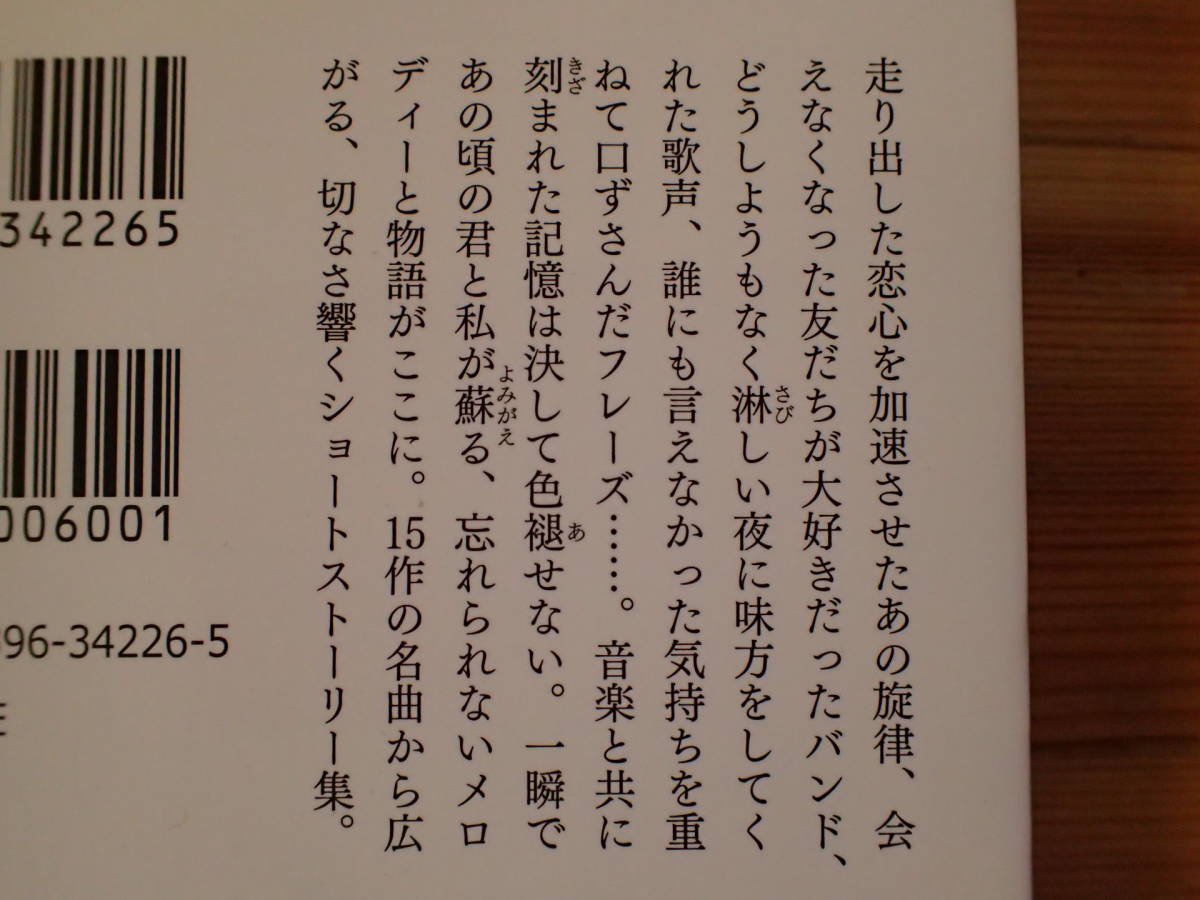 走り出した恋心を加速させたあの旋律、会
えなくなった友だちが大好きだったバンド、
どうしようもなく淋しい夜に味方をしてく
れた歌声、誰にも言えなかった気持ちを重
ねて口ずさんだフレーズ……。音楽と共に
刻まれた記憶は決して色褪せない。一瞬で
あの頃の君と私が蘇る、忘れられないメロ
ディーと物語がここに。15作の名曲から広
がる、切なさ響くショートストーリー集。
さび
きざ
あ
よみがえ
342265
006001
96-34226-5
E